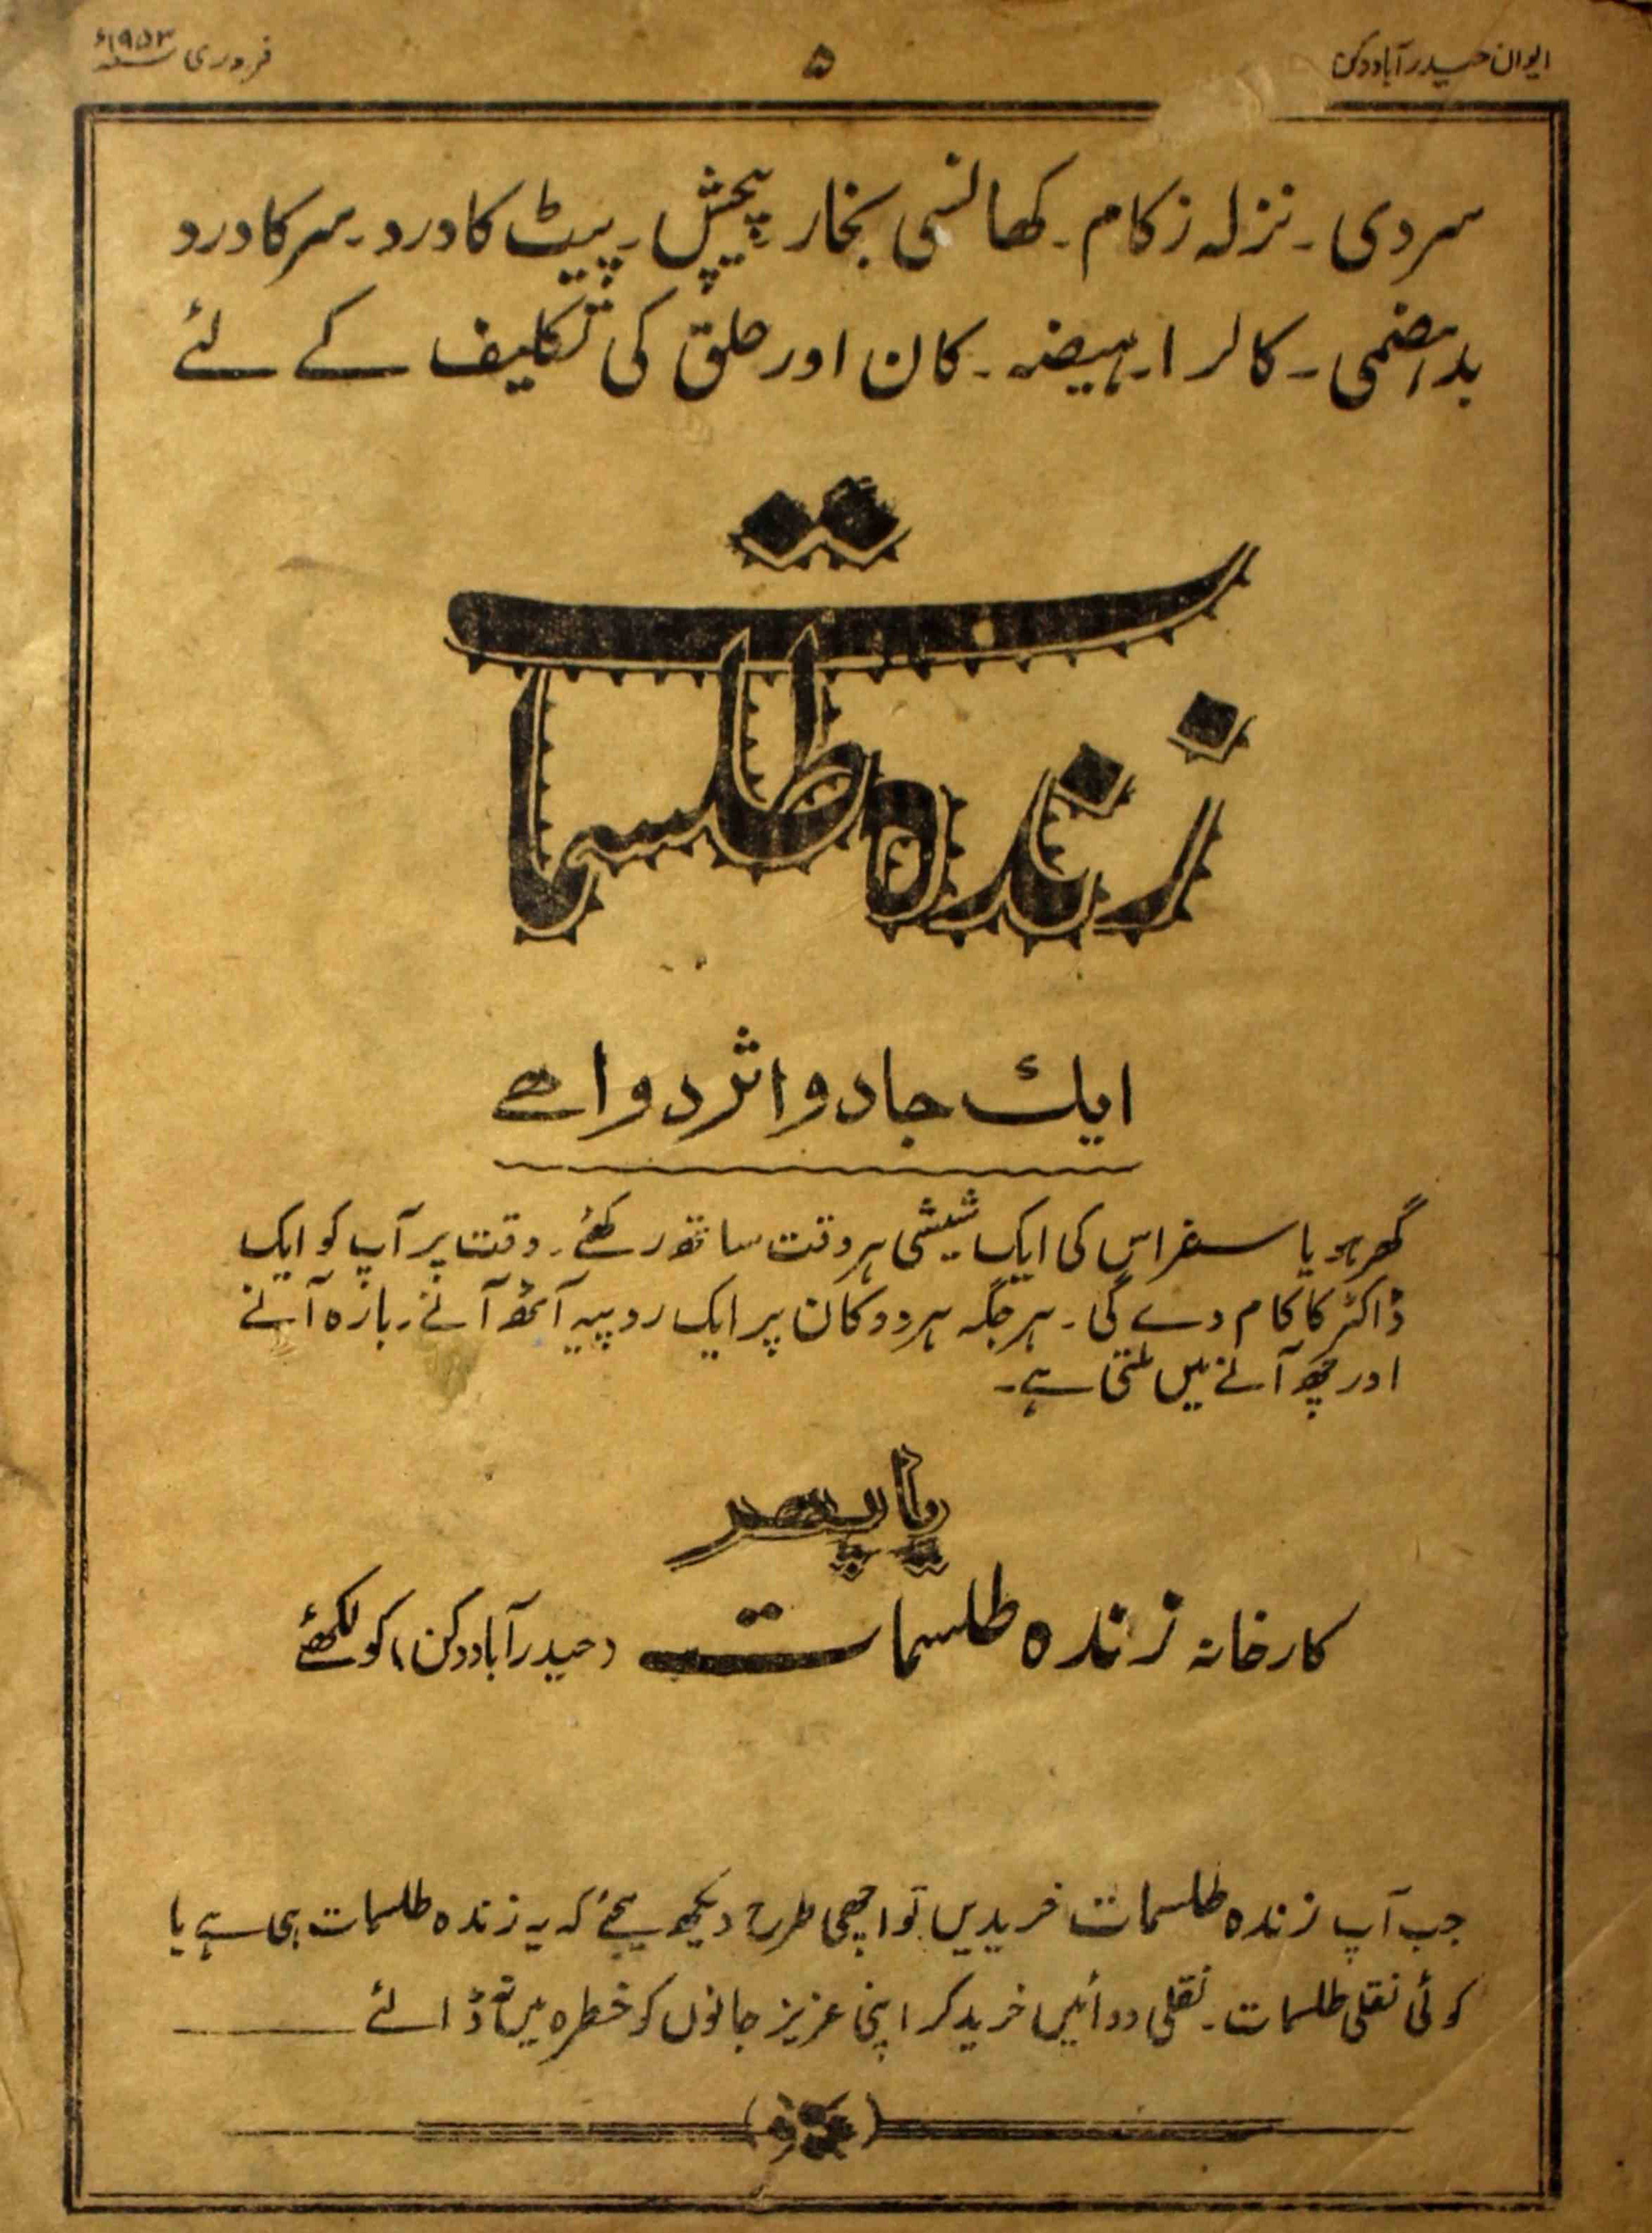 ایوان حیدرآباد دکن
۵
فروری ۱۹۵۳ء
سردی ۔ نزلہ زکام ۔ کھانسی بخار پیچش ۔ پیٹ کا درد ۔ سر کا درد
بدہضمی ۔ کالرا ۔ ہیضہ ۔ کان اور حلق کی تکلیف کے لئے
زندہ طلسمات
ایک جادو اثر دوا ہے
گھر ہو یا سفر اس کی ایک شیشی ہر وقت ساتھ رکھئے ۔ وقت پر آپ کو ایک
ڈاکٹر کا کام دے گی ۔ ہر جگہ ہر دوکان پر ایک روپیہ آٹھ آنے ۔ بارہ آنے
اور چھ آنے میں ملتی ہے ۔
یا پھر
کارخانہ زندہ طلسمات (حیدرآباد دکن) کو لکھئے
جب آپ زندہ طلسمات خریدیں تو اچھی طرح دیکھ لیجئے کہ یہ زندہ طلسمات ہی ہے یا
کوئی نقلی طلسمات ۔ نقلی دوائیں خرید کر اپنی عزیز جانوں کو خطرہ میں نہ ڈالئے